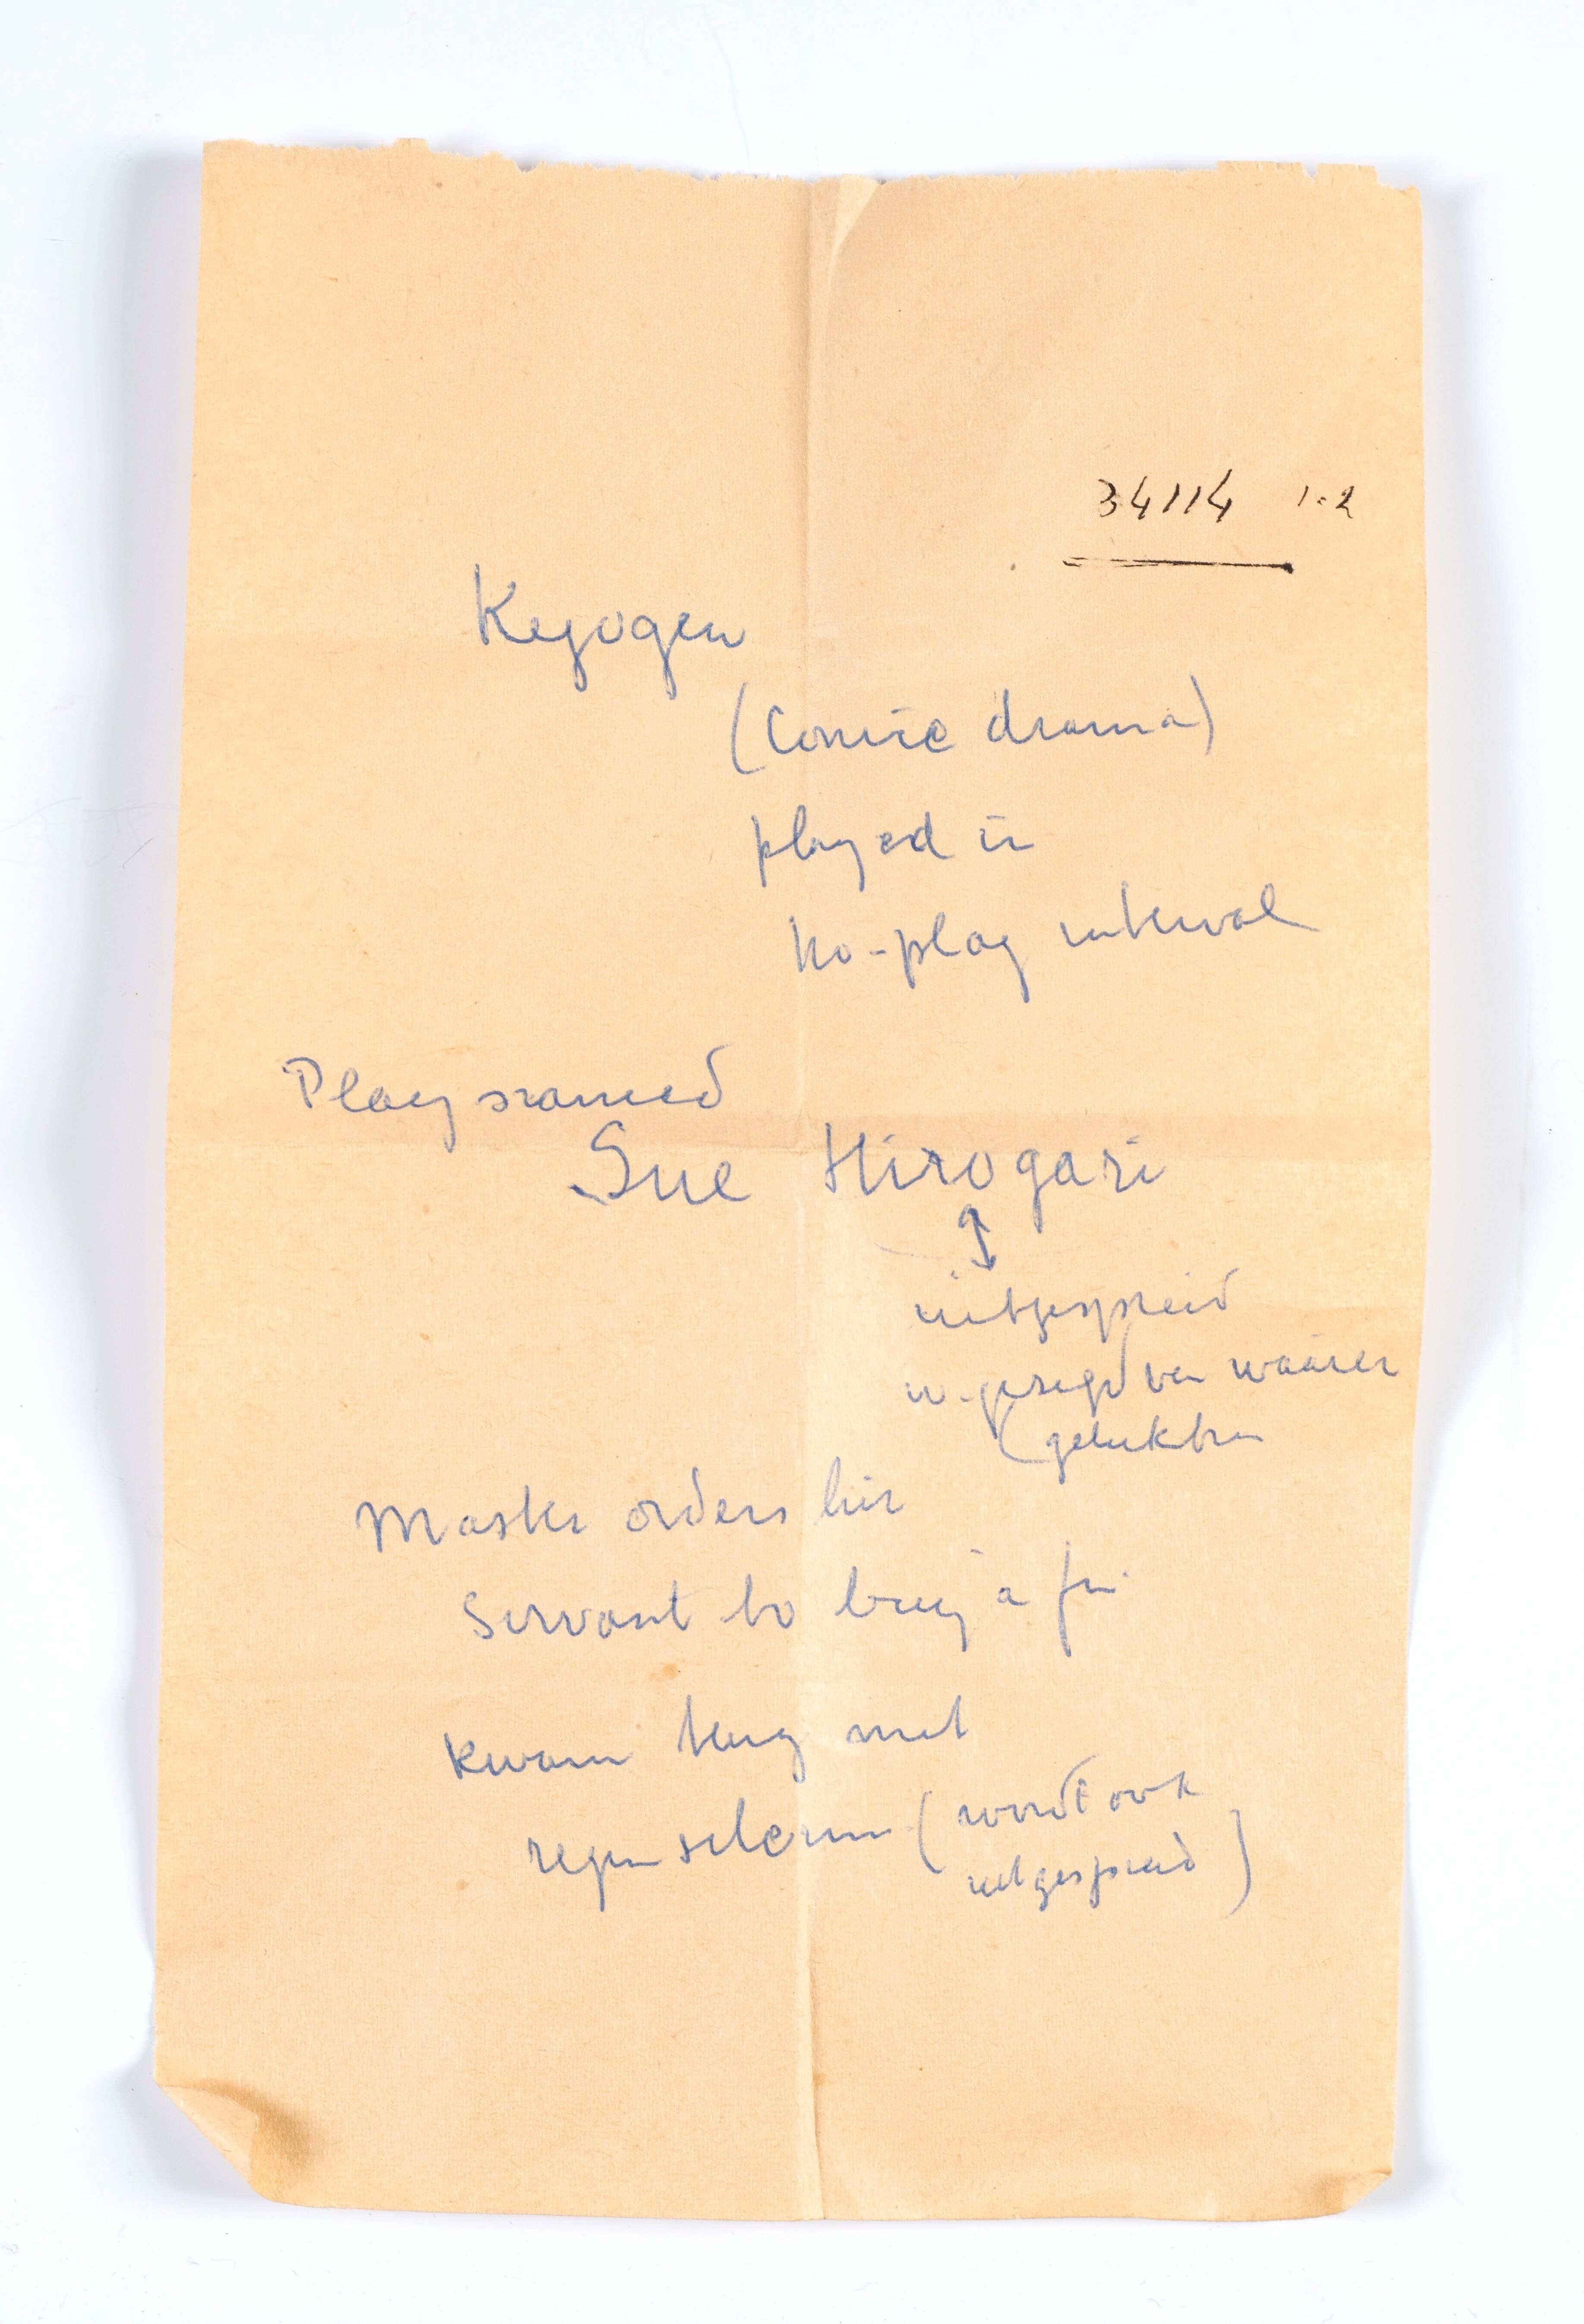 34114 1-2
Keyogen
(Comic drama)
played in
No-play interval
Play named
Sue Hirogari
uitgespreid
w. gezegd van waaier
(geluk
Master orders his
servant to buy a fan
kwam terug met
regenscherm (wordt ook
uitgespreid)